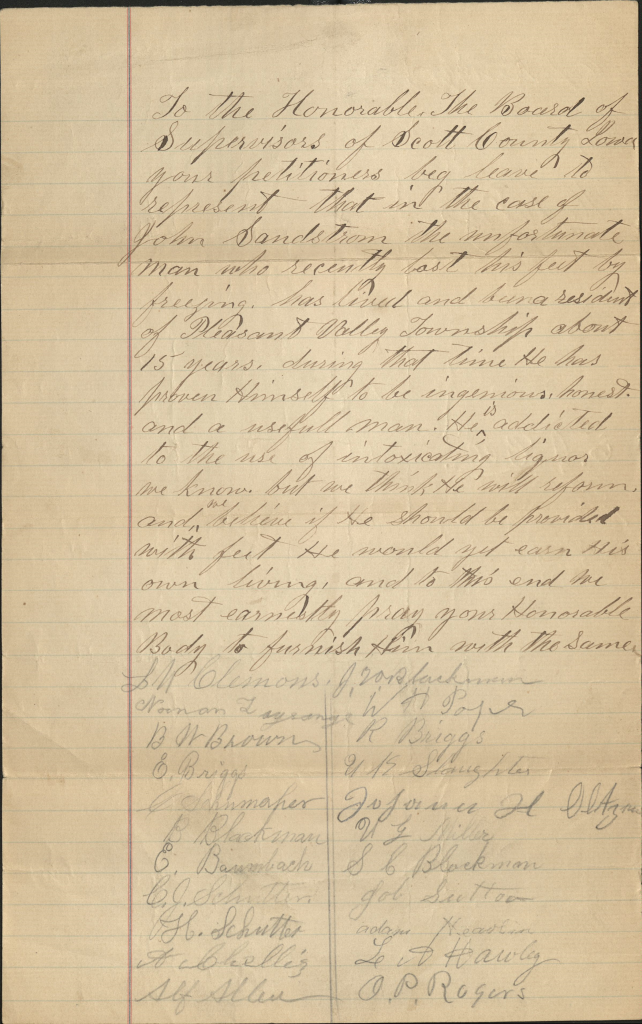 To the Honorable. The Board of
Supervisors of Scott County Iowa
your petitioners beg leave to
represent that in the case of
John Sandstrom the unfortunate
man who recently lost his feet by
freezing. has lived and been a resident
of Pleasant Valley Township about
15 years. during that time He has
proven Himself to be ingenious. honest.
and a usefull man. He is addicted
to the use of intoxicating liquor
we know. but we think He will reform.
and we believe if He should be provided
with feet He would yet earn His
own living, and to this end we
most earnestly pray your Honorable
Body to furnish Him with the same
Clemons. Blackman
W H Pope
B W Brown R Briggs
E. Briggs Slaughter
B Blackman U G Miller
E. Baumbach S C Blackman
C. J. Schutter Job Sutton
H. Schutter adam
A L A Hawley
Alf Allen O. P. Rogers